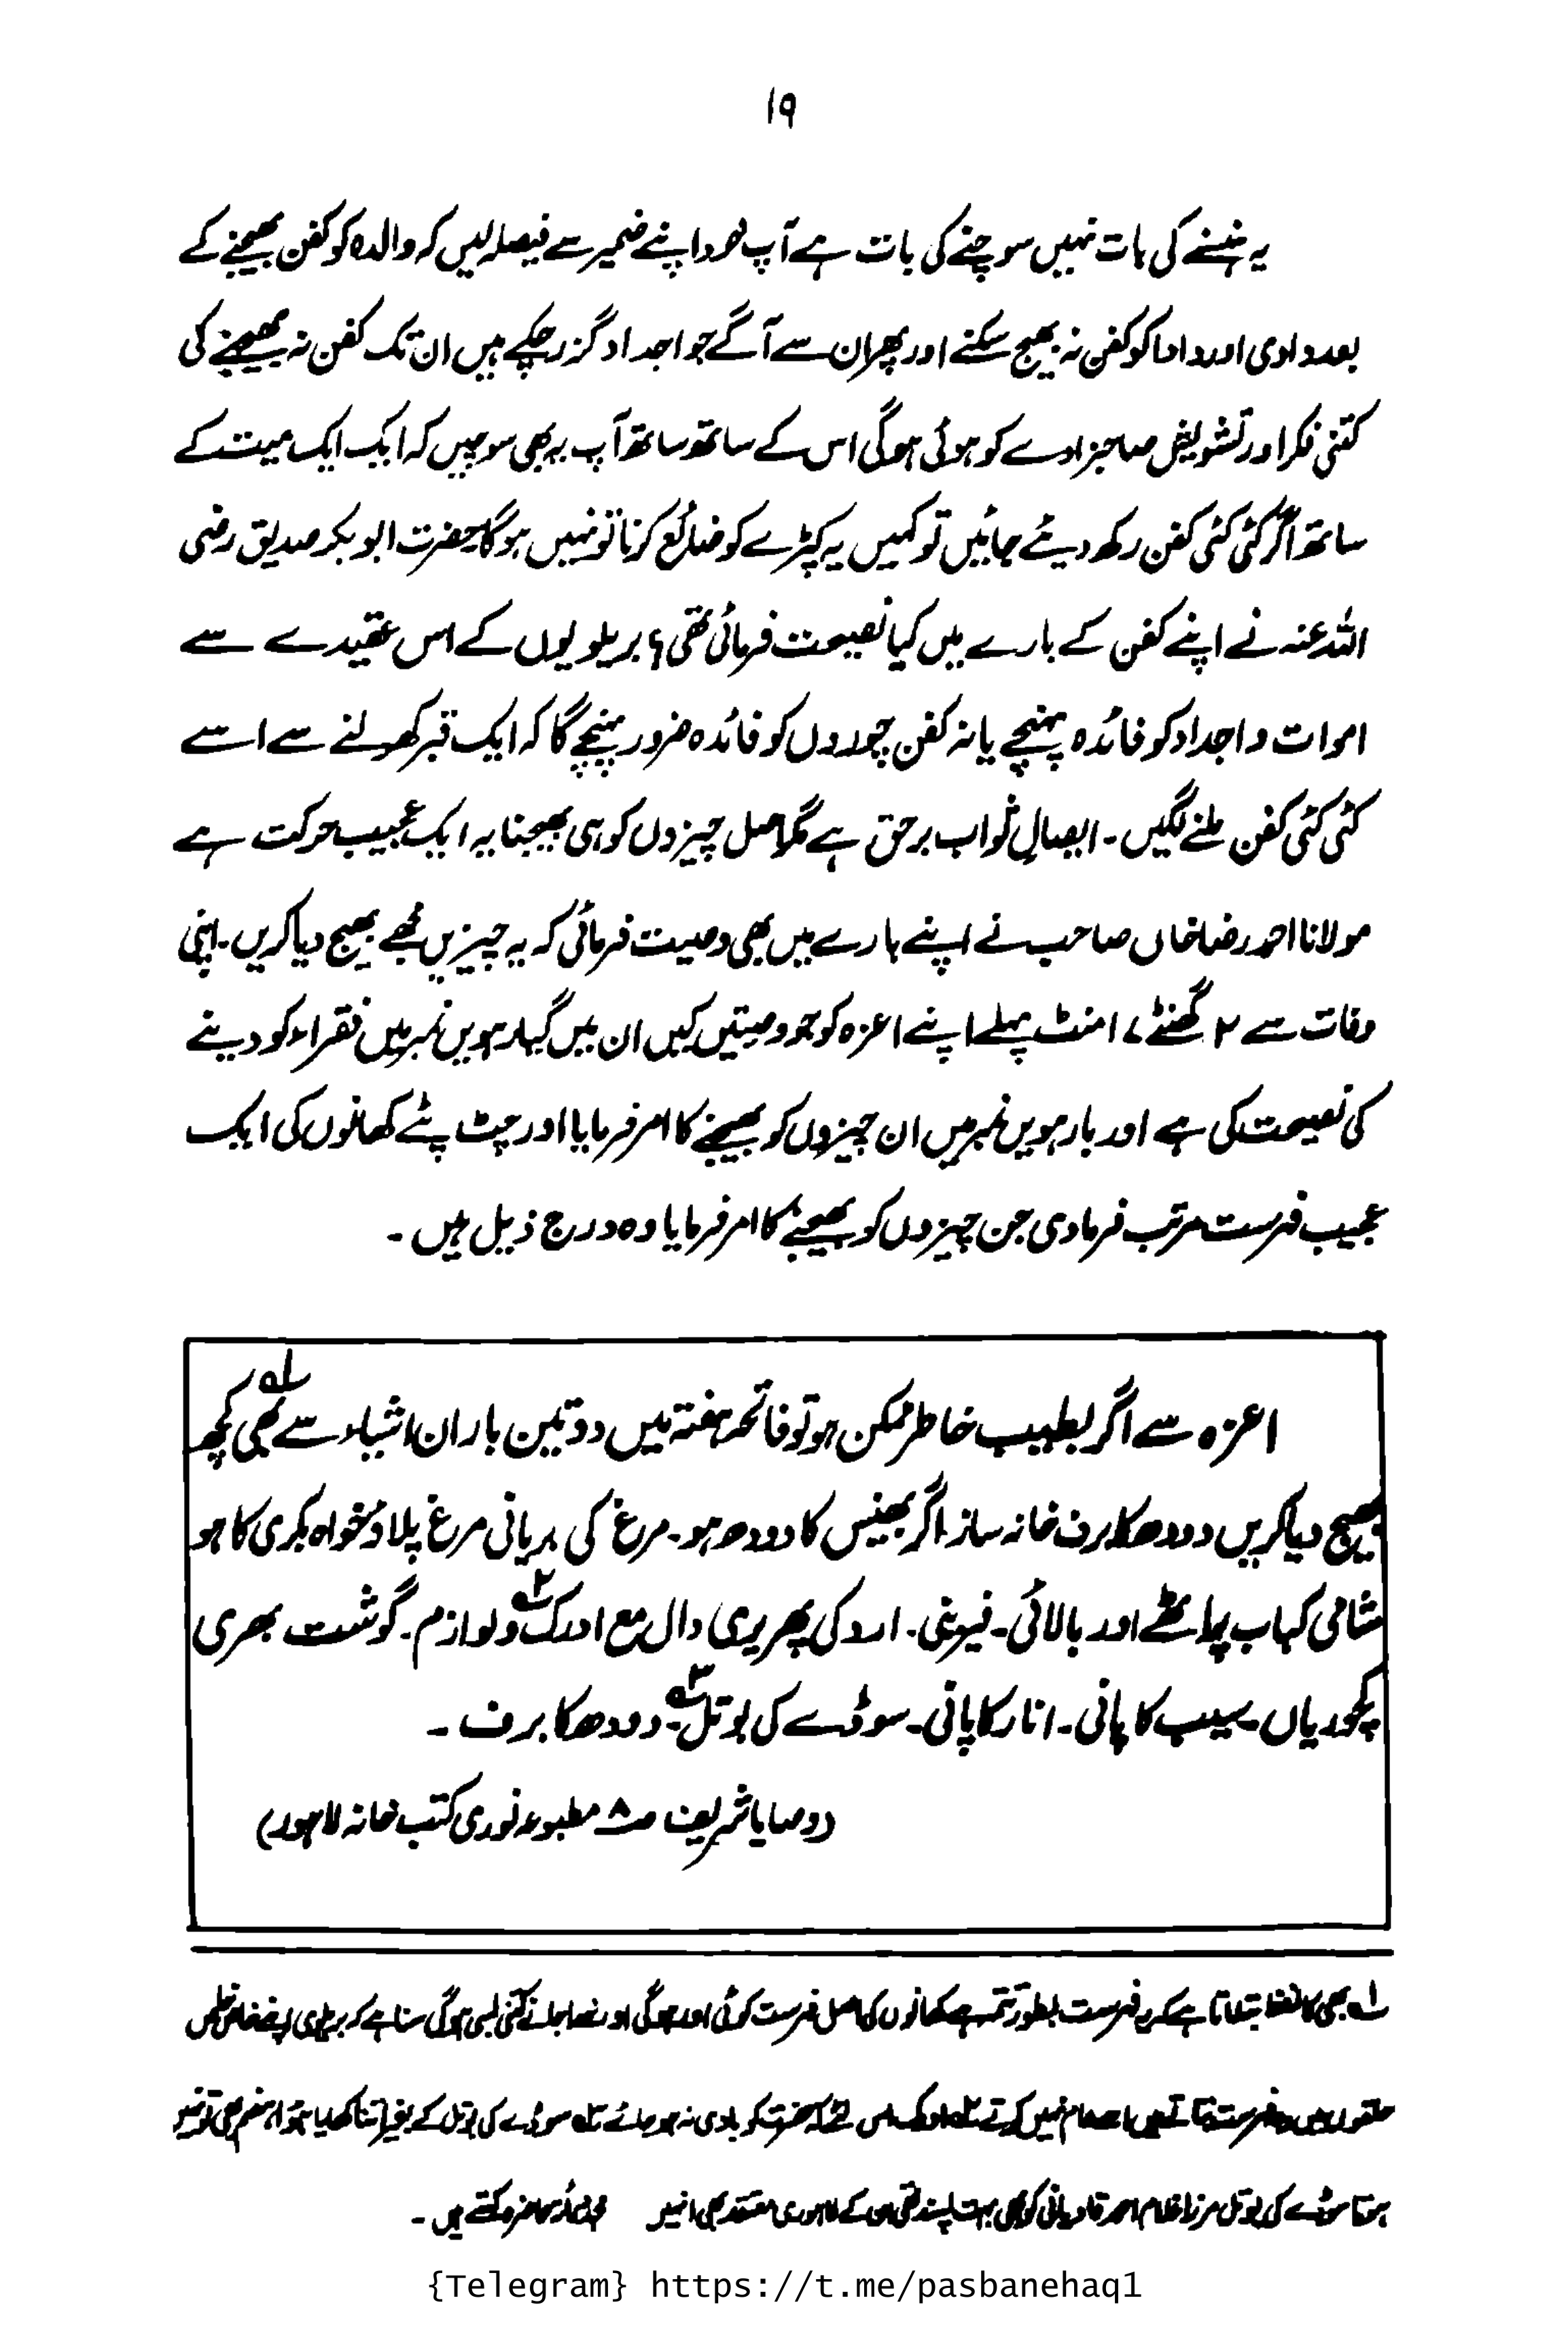 ۱۹
یہ ہنسنے کی بات نہیں سوچنے کی بات ہے آپ خود اپنے ضمیر سے فیصلہ لیں کہ والدہ کو کفن بھیجنے کے
بعد دادی اور دادا کو کفن نہ بھیج سکنے اور پھر ان سے آگے جو اجداد گزر چکے ہیں ان تک کفن نہ بھیجنے کی
کتنی فکر اور تشویش صاحبزادے کو ہوئی ہو گی اس کے ساتھ ساتھ آپ یہ بھی سوچیں کہ ایک ایک میت کے
ساتھ اگر کئی کئی کفن رکھ دیئے جائیں تو کہیں یہ کپڑے کو ضائع کرنا تو نہیں ہوگا حضرت ابوبکر صدیق رضی
اللہ عنہ نے اپنے کفن کے بارے میں کیا نصیحت فرمائی تھی؟ بریلویوں کے اس عقیدے سے
اموات و اجداد کو فائدہ پہنچے یا نہ کفن چوروں کو فائدہ ضرور پہنچے گا کہ ایک قبر کھولنے سے اسے
کئی کئی کفن ملنے لگیں ۔ ایصال ثواب برحق ہے مگر اصل چیزوں کو ہی بھیجنا یہ ایک عجیب حرکت ہے
مولانا احمد رضا خاں صاحب نے اپنے بارے میں بھی وصیت فرمائی کہ یہ چیزیں مجھے بھیج دیا کریں ۔ اپنی
وفات سے ۲ گھنٹے ۱۷ منٹ پہلے اپنے اعزہ کو جو وصیتیں کیں ان میں گیارہویں نمبر میں فقراء کو دینے
کی نصیحت کی ہے اور بارہویں نمبر میں ان چیزوں کو بھیجنے کا امر فرمایا اور چٹ پٹے کھانوں کی ایک
عجیب فہرست مرتب فرما دی جن چیزوں کو بھیجنے کا امر فرمایا وہ درج ذیل ہیں ۔
اعزہ سے اگر بطیب خاطر ممکن ہو تو فاتحہ ہفتہ میں دو تین بار ان اشیاء سے بھی لہ کچھ
بھیج دیا کریں دودھ کا برف خانہ ساز اگر بھینس کا دودھ ہو ۔ مرغ کی بریانی مرغ پلاؤ خواہ بکری کا ہو
شامی کباب پراٹھے اور بالائی ۔ فیرینی ۔ ارد کی پھریری دال مع ادرک ۲ و لوازم ۔ گوشت بھری
کچوریاں ۔ سیب کا پانی ۔ انار کا پانی ۔ سوڈے کی بوتل ۳ ۔ دودھ کا برف ۔
(وصایا شریف ص۸ مطبوعہ نوری کتب خانہ لاہور)
لہ بھی کا لفظ بتلاتا ہے کہ یہ فہرست بطور تتمہ ہے کھانوں کی اصل فہرست کوئی اور ہو گی اور خدا جانے کتنی لمبی ہوگی سنا ہے کہ بریلوی اپنے خاص علمی
حلقوں میں وہ فہرست بتاتے ہیں عام نہیں کرتے ادرک اس لئے کہ حضرت کو بادی نہ ہو جائے سوڈے کی بوتل کے بغیر اتنا کھایا ہوا ہضم بھی تو نہیں
ہوتا سوڈے کی بوتل مرزا غلام احمد قادیانی کو بھی بہت پسند تھی ان کے لاہوری معتقد بھی انہیں
{Telegram} https://t.me/pasbanehaq1